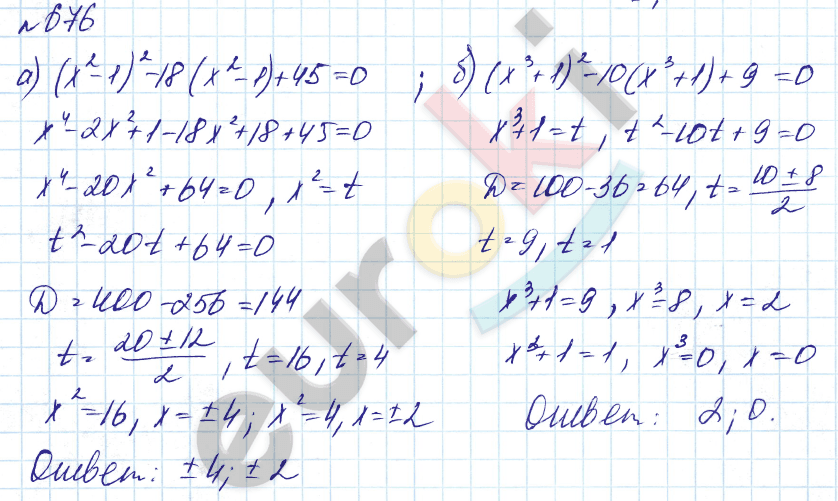 № 676
а) (x² - 1)² - 18(x² - 1) + 45 = 0 ;
x⁴ - 2x² + 1 - 18x² + 18 + 45 = 0
x⁴ - 20x² + 64 = 0 , x² = t
t² - 20t + 64 = 0
D = 400 - 256 = 144
t = (20 ± 12)/2 , t = 16, t = 4
x² = 16, x = ±4; x² = 4, x = ±2
Ответ: ±4; ±2
б) (x³ + 1)² - 10(x³ + 1) + 9 = 0
x³ + 1 = t , t² - 10t + 9 = 0
D = 100 - 36 = 64, t = (10 ± 8)/2
t = 9, t = 1
x³ + 1 = 9 , x³ = 8, x = 2
x³ + 1 = 1, x³ = 0, x = 0
Ответ: 2; 0.
euroki